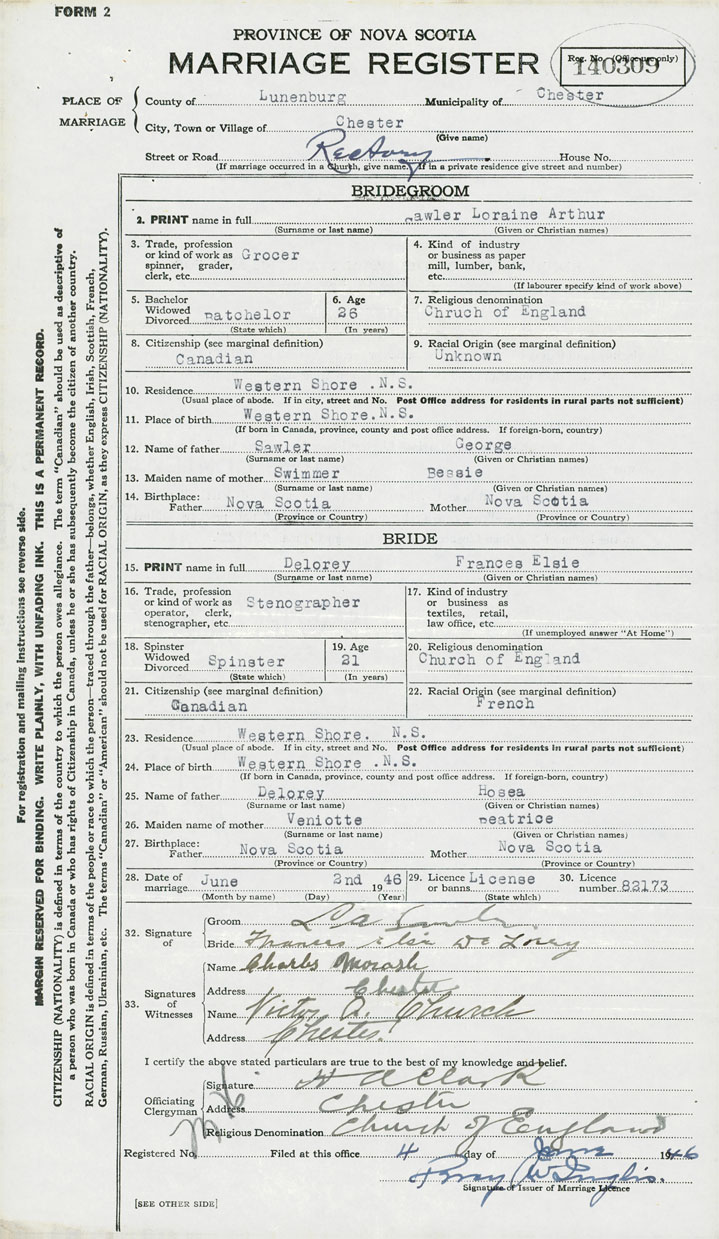 FORM 2
PROVINCE OF NOVA SCOTIA
MARRIAGE REGISTER
Reg. No. (Office use only)
140309
PLACE OF MARRIAGE
County of Lunenburg Municipality of Chester
City, Town or Village of Chester
(Give name)
Street or Road Rectory House No.
(If marriage occurred in a Church, give name. If in a private residence give street and number)
BRIDEGROOM
2. PRINT name in full Sawler Loraine Arthur
(Surname or last name) (Given or Christian names)
3. Trade, profession or kind of work as spinner, grader, clerk, etc. Grocer
4. Kind of industry or business as paper mill, lumber, bank, etc.
(If labourer specify kind of work above)
5. Bachelor Widowed Divorced Batchelor
(State which)
6. Age 26
(In years)
7. Religious denomination
Chruch of England
8. Citizenship (see marginal definition)
Canadian
9. Racial Origin (see marginal definition)
Unknown
10. Residence Western Shore .N.S.
(Usual place of abode. If in city, street and No. Post Office address for residents in rural parts not sufficient)
11. Place of birth Western Shore.N.S.
(If born in Canada, province, county and post office address. If foreign-born, country)
12. Name of father Sawler George
(Surname or last name) (Given or Christian names)
13. Maiden name of mother Swimmer Bessie
(Surname or last name) (Given or Christian names)
14. Birthplace: Father Nova Scotia Mother Nova Scotia
(Province or Country) (Province or Country)
BRIDE
15. PRINT name in full Delorey Frances Elsie
(Surname or last name) (Given or Christian names)
16. Trade, profession or kind of work as operator, clerk, stenographer, etc. Stenographer
17. Kind of industry or business as textiles, retail, law office, etc.
(If unemployed answer "At Home")
18. Spinster Widowed Divorced Spinster
(State which)
19. Age 21
(In years)
20. Religious denomination
Church of England
21. Citizenship (see marginal definition)
Canadian
22. Racial Origin (see marginal definition)
French
23. Residence Western Shore. N.S.
(Usual place of abode. If in city, street and No. Post Office address for residents in rural parts not sufficient)
24. Place of birth Western Shore .N.S.
(If born in Canada, province, county and post office address. If foreign-born, country)
25. Name of father Delorey Hosea
(Surname or last name) (Given or Christian names)
26. Maiden name of mother Veniotte Beatrice
(Surname or last name) (Given or Christian names)
27. Birthplace: Father Nova Scotia Mother Nova Scotia
(Province or Country) (Province or Country)
28. Date of marriage June 2nd 1946
(Month by name) (Day) (Year)
29. Licence or banns. License
(State which)
30. Licence number 82173
32. Signature of
Groom
Bride Frances Elsie DeLorey
33. Signatures of Witnesses
Name Charles
Address Chester
Name Victor A. Church
Address Chester.
I certify the above stated particulars are true to the best of my knowledge and belief.
Officiating Clergyman
Signature H A Clark
Address Chester
Religious Denomination Church of England
Registered No. Filed at this office 4 day of June 1946
Signature of Issuer of Marriage Licence
[SEE OTHER SIDE]
For registration and mailing instructions see reverse side.
MARGIN RESERVED FOR BINDING. WRITE PLAINLY, WITH UNFADING INK. THIS IS A PERMANENT RECORD.
CITIZENSHIP (NATIONALITY) is defined in terms of the country to which the person owes allegiance. The term "Canadian" should be used as descriptive of
a person who was born in Canada or who has rights of Citizenship in Canada, unless he or she has subsequently become the citizen of another country.
RACIAL ORIGIN is defined in terms of the people or race to which the person—traced through the father—belongs, whether English, Irish, Scottish, French,
German, Russian, Ukrainian, etc. The terms "Canadian" or "American" should not be used for RACIAL ORIGIN, as they express CITIZENSHIP (NATIONALITY).